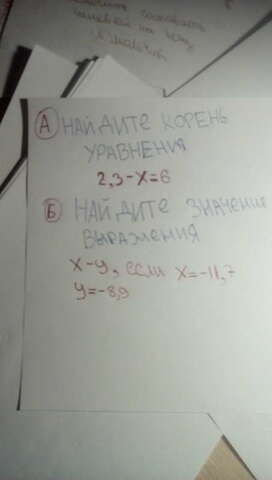 А НАЙДИТЕ КОРЕНЬ
УРАВНЕНИЯ
2,3-X=6
Б НАЙДИТЕ ЗНАЧЕНИЕ
ВЫРАЖЕНИЯ
X-У, если X=-11,7
У=-8,9